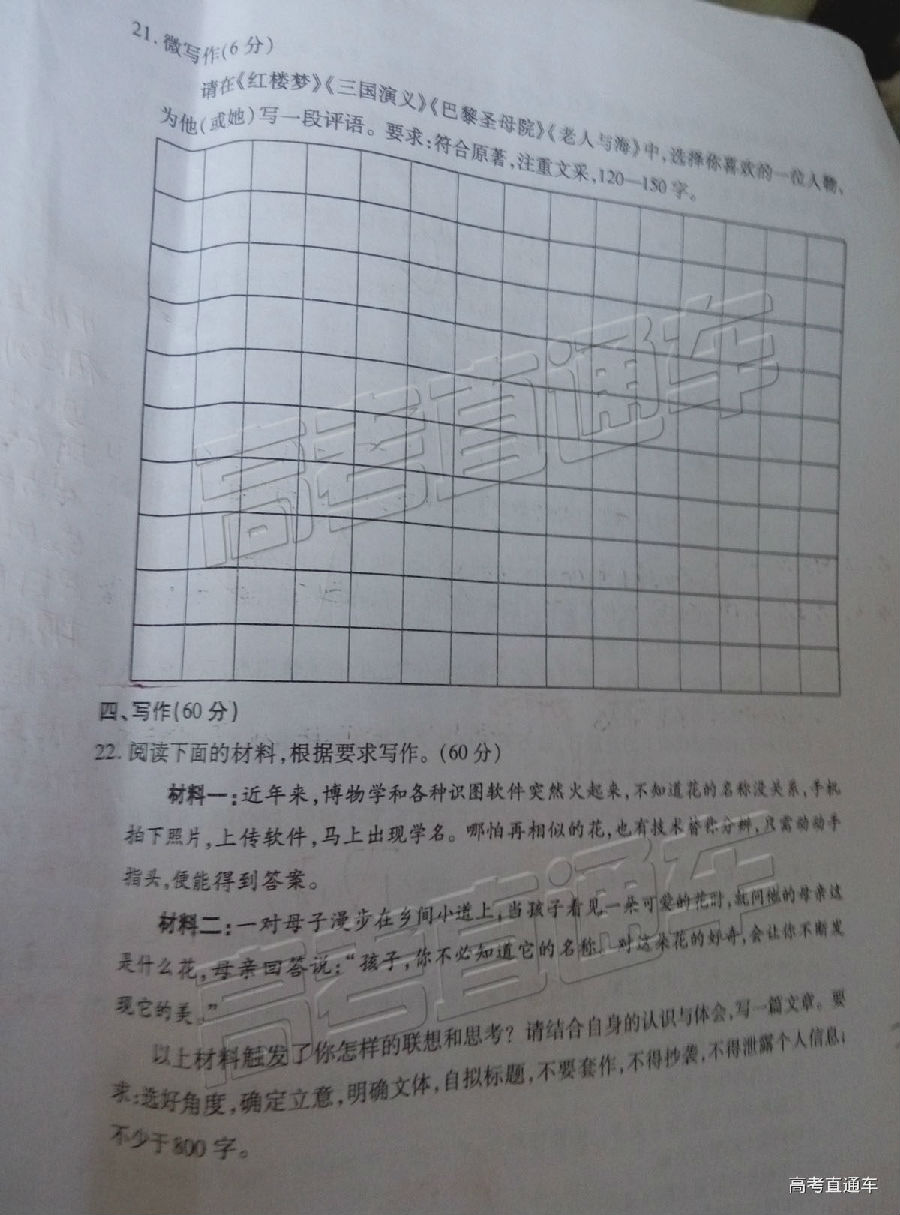 21. 微写作(6分)
请在《红楼梦》《三国演义》《巴黎圣母院》《老人与海》中,选择你喜欢的一位人物,
为他(或她)写一段评语。要求:符合原著,注重文采,120—150字。
高考直通车
四、写作(60分)
22. 阅读下面的材料,根据要求写作。(60分)
材料一:近年来,博物学和各种识图软件突然火起来,不知道花的名称没关系,手机
拍下照片,上传软件,马上出现学名。哪怕再相似的花,也有技术替你分辨,只需动动手
指头,便能得到答案。
材料二:一对母子漫步在乡间小道上,当孩子看见一朵可爱的花时,就问他的母亲这
是什么花,母亲回答说:“孩子,你不必知道它的名称。对这朵花的好奇,会让你不断发
现它的美。”
高考直通车
以上材料触发了你怎样的联想和思考?请结合自身的认识与体会,写一篇文章。要
求:选好角度,确定立意,明确文体,自拟标题,不要套作,不得抄袭,不得泄露个人信息;
不少于800字。
高考直通车